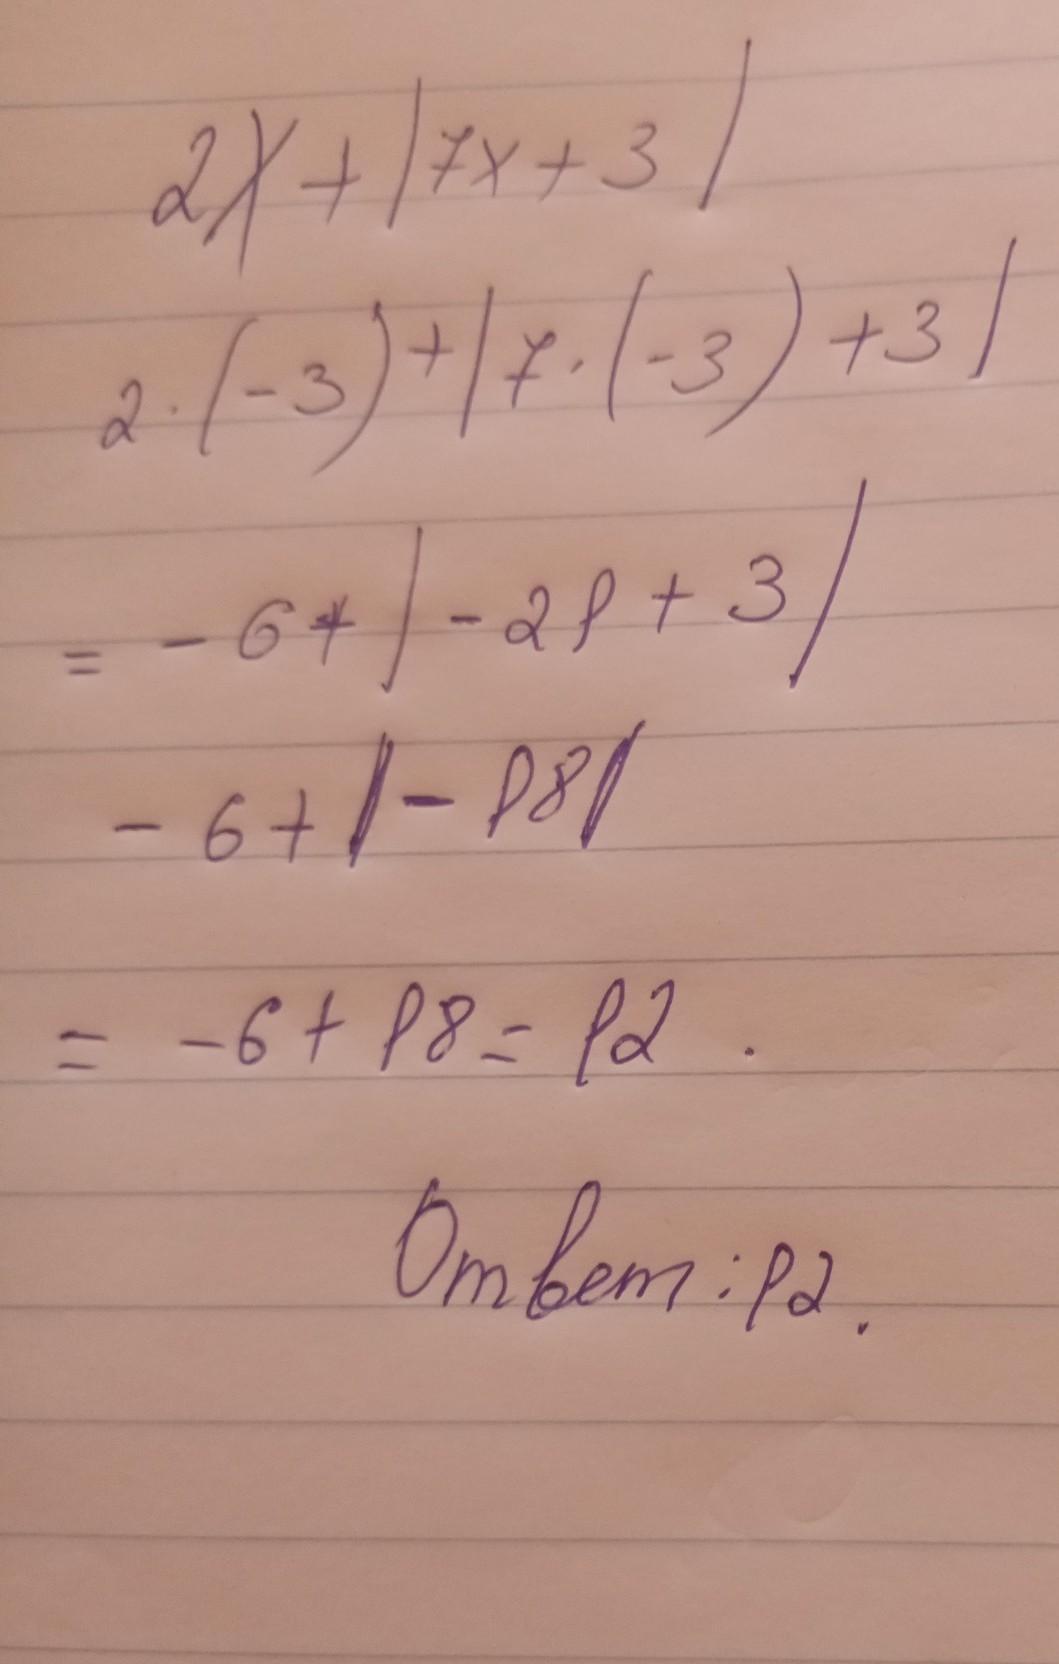 2x+|7x+3|
2·(-3)+|7·(-3)+3|
= -6+|-21+3|
-6+|-18|
= -6+18=12.
Ответ:12.